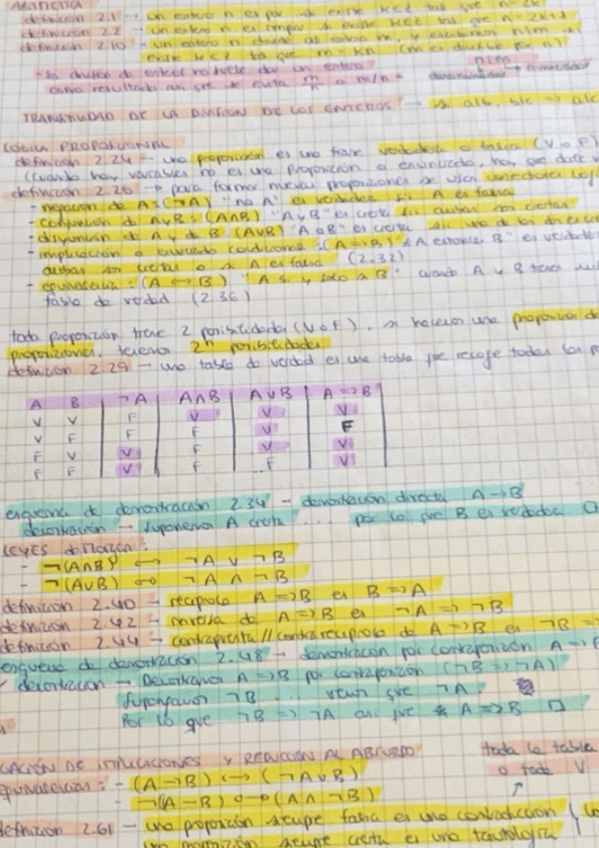 ARITMÉTICA
definición 2.1 → un entero n es par si existe k∈Z tal que n = 2k
definición 2.2 → un entero n es impar si existe k∈Z tal que n = 2k+1
definición 2.10 → un entero n divide al entero m, y escribimos n|m si
existe k∈Z tal que m = kn (m es divisible por n)
- la división de enteros no suele dar un entero
como resultado así que se evita m/n o m/n -
TRANSITIVIDAD DE LA DIVISIÓN DE LOS ENTEROS → si a|b, b|c => a|c
LÓGICA PROPOSICIONAL
definición 2.24 - una proposición es una frase verdadera o falsa (V o F)
(cuando hay variables no es una proposición o enunciado, hay que darle v
definición 2.26 → para formar nuevas proposiciones se usan conectores log
- negación de A: (¬A) "no A" es verdadera si A es falsa
- conjunción de A y B: (A∧B) "A y B" es cierta sii ambas son ciertas
- disyunción de A y de B (A∨B) "A o B" es cierta sii uno de los dos es cier
- implicación o enunciado condicional: (A => B) A entonces B" es verdader
ambas son ciertas o si A es falsa (2.32)
- equivalencia: (A <-> B) "A si y solo si B" cuando A y B tienen
tabla de verdad (2.36)
toda proposición tiene 2 posibilidades (V o F), si hacemos una proposición de
proposiciones, tenemos 2ⁿ posibilidades
definición 2.29 → una tabla de verdad es una tabla que recoge todas las p
A B ¬A A∧B A∨B A => B
V V F V V V
V F F F V F
F V V F V V
F F V F F V
esquema de demostración 2.34 - demostración directa A → B
demostración → suponemos A cierta ... por lo que B es verdadera □
LEYES de Morgan:
- ¬(A∧B) <-> ¬A ∨ ¬B
- ¬(A∨B) <-> ¬A ∧ ¬B
definición 2.40 → recíproco A => B es B => A
definición 2.42 → inversa de A => B es ¬A => ¬B
definición 2.44 → contrapositiva // contrarecíproco de A => B es ¬B =>
esquema de demostración 2.48 - demostración por contraposición A =>
demostración → Demostramos A => B por contraposición (¬B => ¬A)
Supongamos ¬B ... vemos que ¬A
Por lo que ¬B => ¬A así que A => B □
GACIÓN DE IMPLICACIONES Y REDUCCIÓN AL ABSURDO
toda la tabla
o toda V
equivalencias: - (A → B) <-> (¬A∨B)
- ¬(A → B) <-> (A∧¬B)
definición 2.61 - una proposición siempre falsa es una contradicción
una proposición siempre cierta es una tautología